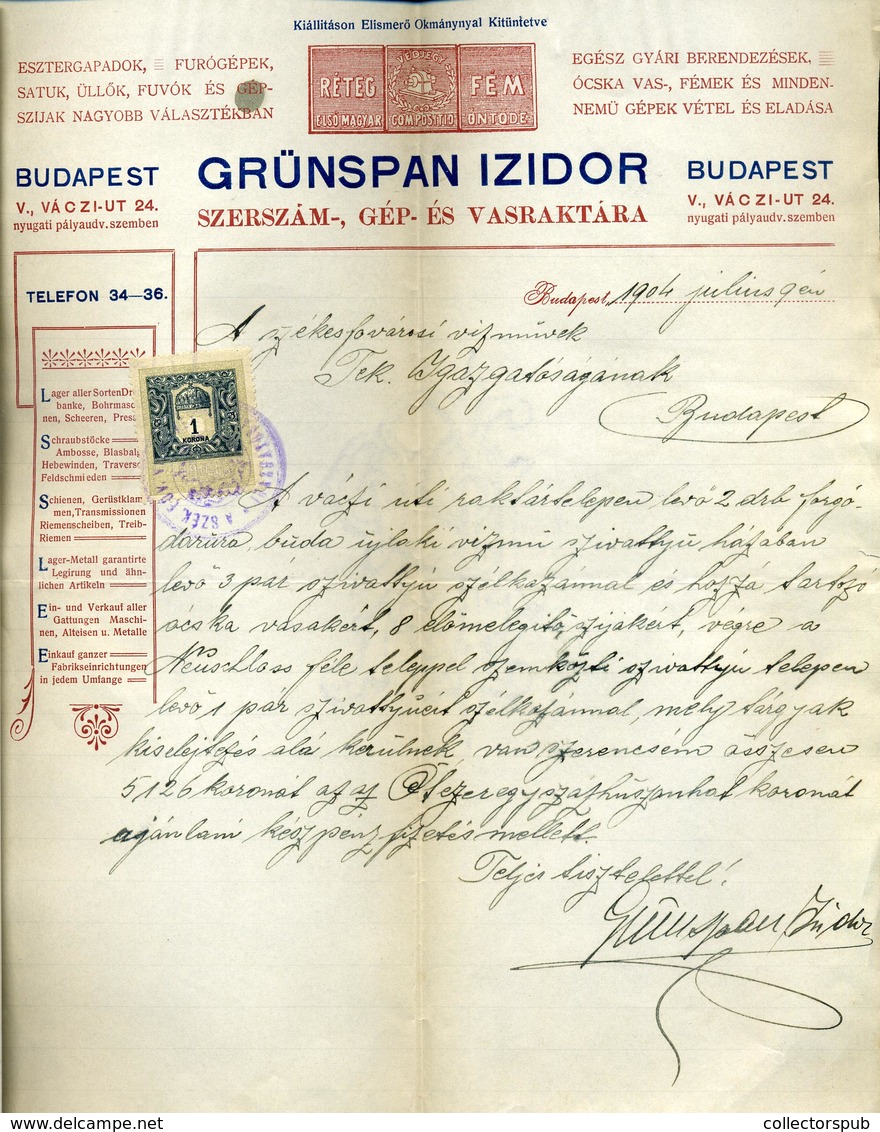 Kiállitáson Elismerő Okmánynyal Kitüntetve
ESZTERGAPADOK, FURÓGÉPEK,
SATUK, ÜLLŐK, FUVÓK ÉS GÉP-
SZIJAK NAGYOBB VÁLASZTÉKBAN
VÉDJEGY
RÉTEG FÉM
ELSŐ MAGYAR COMPOSITIO ÖNTÖDE
EGÉSZ GYÁRI BERENDEZÉSEK,
ÓCSKA VAS-, FÉMEK ÉS MINDEN-
NEMŰ GÉPEK VÉTEL ÉS ELADÁSA
BUDAPEST
V., VÁCZI-UT 24.
nyugati pályaudv. szemben
GRÜNSPAN IZIDOR
SZERSZÁM-, GÉP- ÉS VASRAKTÁRA
BUDAPEST
V., VÁCZI-UT 24.
nyugati pályaudv. szemben
TELEFON 34—36.
Budapest, 1904 július 9én
A székesfovárosi vizművek
Tek. Igazgatóságának
Budapest
1
KORONA
A SZÉK
Lager aller Sorten Dre
banke, Bohrmasch
nen, Scheeren, Press
Schraubstöcke
Ambosse, Blasbalg
Hebewinden, Traverse
Feldschmieden
Schienen, Gerüstklam
men, Transmissionen
Riemenscheiben, Treib-
Riemen
Lager-Metall garantirte
Legirung und ähn-
lichen Artikeln
Ein- und Verkauf aller
Gattungen Maschi-
nen, Alteisen u. Metalle
Einkauf ganzer
Fabrikseinrichtungen
in jedem Umfange
A váczi úti raktártelepen levő 2 drb forgó-
darúra, buda újlaki vizmű szivattyú házában
levő 3 pár szivattyú szélkazánnal és hozza tartozó
ócska vasakért, 8 előmelegitő, szijakért, végre a
Neuschloss féle teleppel szemközti szivattyú telepen
levő 1 pár szivattyúért szélkazánnal, mely tárgyak
kiselejtezés alá kerülnek, van szerencsém összesen
5126 koronát az az Ötezeregyszázhúszonhat koronát
ajánlani készpénz fizetés mellett.
Teljes tisztelettel!
Grünspan Izidor
collectorspub